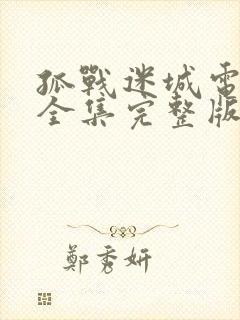 孤戰迷城電
全集完整版
鄭秀妍